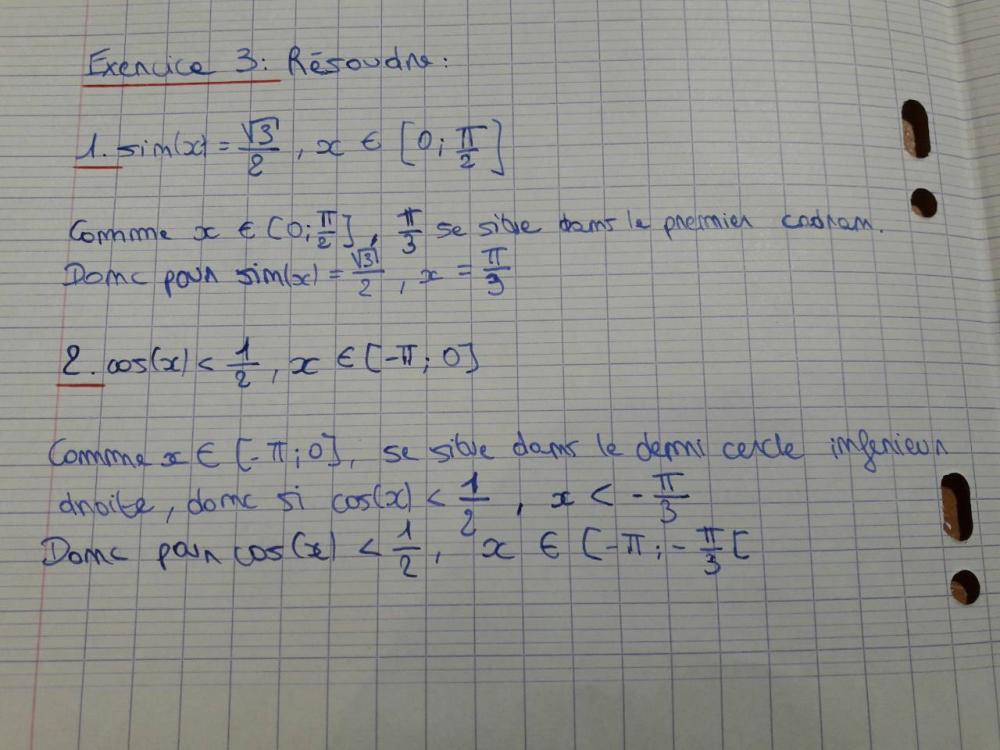 Exercice 3: Résoudre:
1. sin(x) = √3/2, x ∈ [0; π/2]
Comme x ∈ [0; π/2], π/3 se situe dans le premier cadran.
Donc pour sin(x) = √3/2, x = π/3
2. cos(x) < 1/2, x ∈ [-π; 0]
Comme x ∈ [-π; 0], se situe dans le demi cercle inferieur
droite, donc si cos(x) < 1/2, x < -π/3
Donc pour cos(x) < 1/2, x ∈ [-π; -π/3[